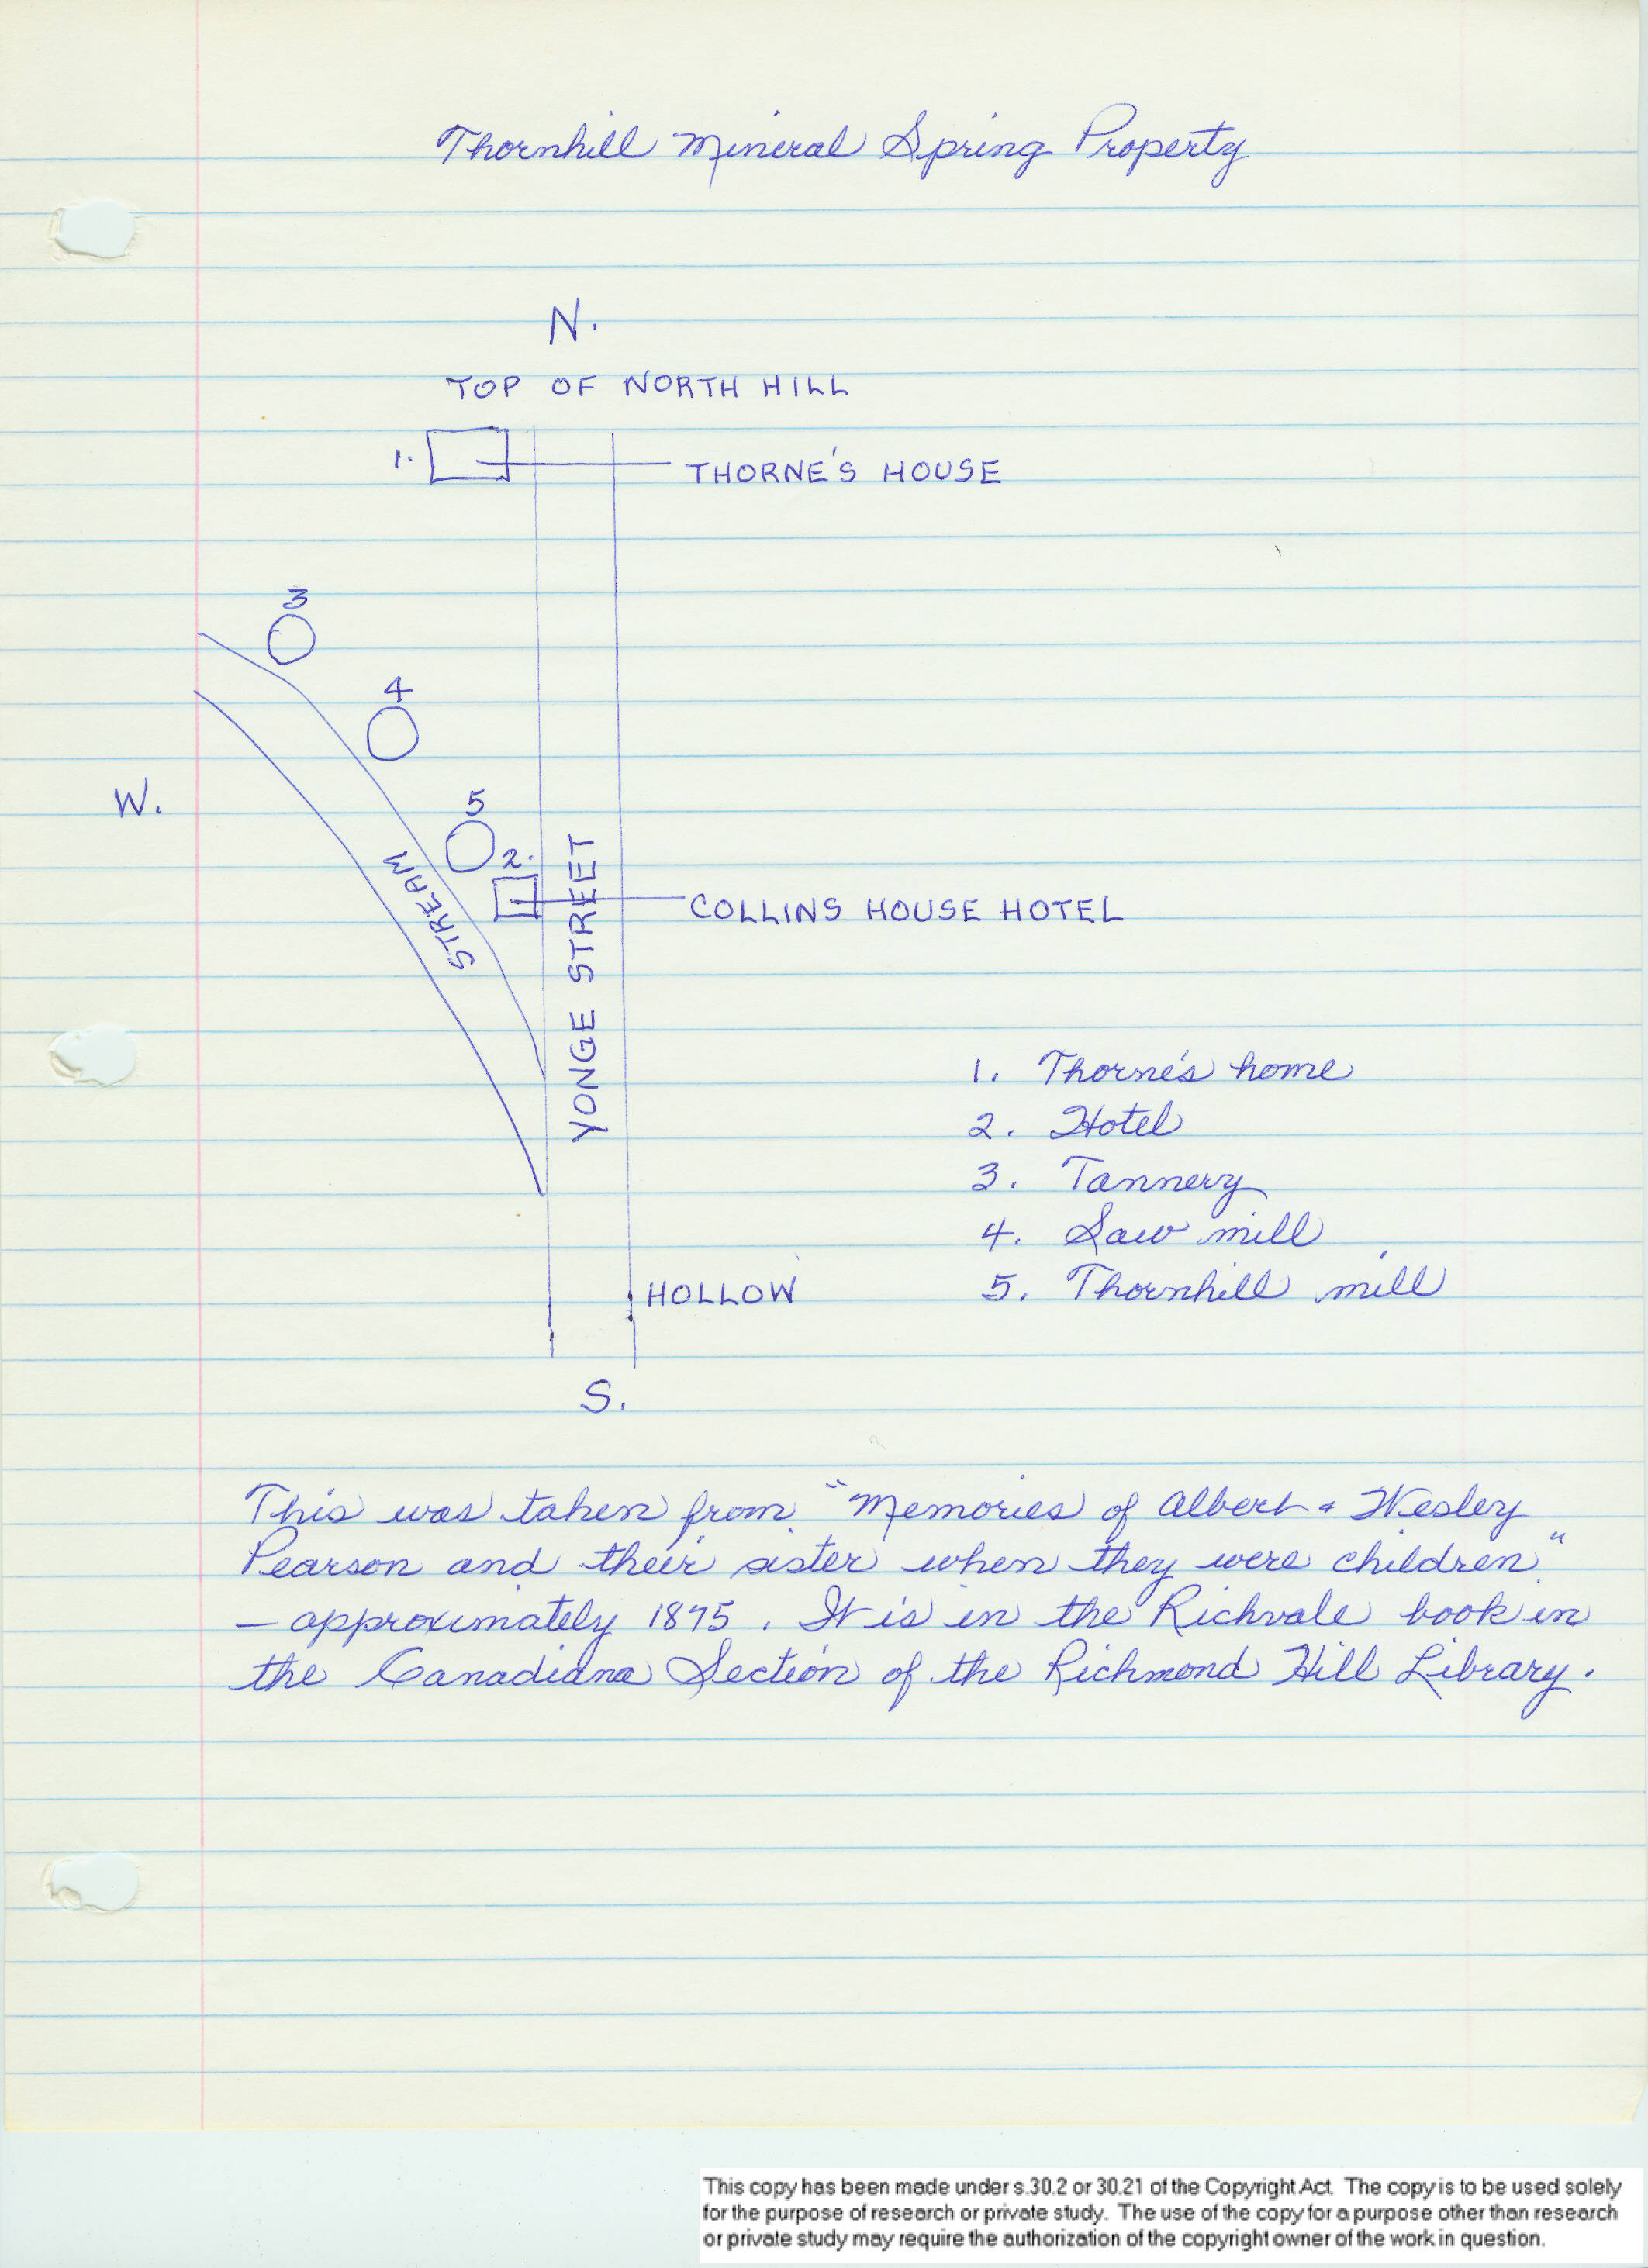 Thornhill Mineral Spring Property
N.
TOP OF NORTH HILL
1.
THORNE'S HOUSE
3
4
W.
5
2.
STREAM
YONGE STREET
COLLINS HOUSE HOTEL
1. Thorne's home
2. Hotel
3. Tannery
4. Saw mill
5. Thornhill mill
HOLLOW
S.
This was taken from "Memories of Albert + Wesley
Pearson and their sister when they were children"
– approximately 1875. It is in the Richvale book in
the Canadiana Section of the Richmond Hill Library.
This copy has been made under s.30.2 or 30.21 of the Copyright Act. The copy is to be used solely
for the purpose of research or private study. The use of the copy for a purpose other than research
or private study may require the authorization of the copyright owner of the work in question.